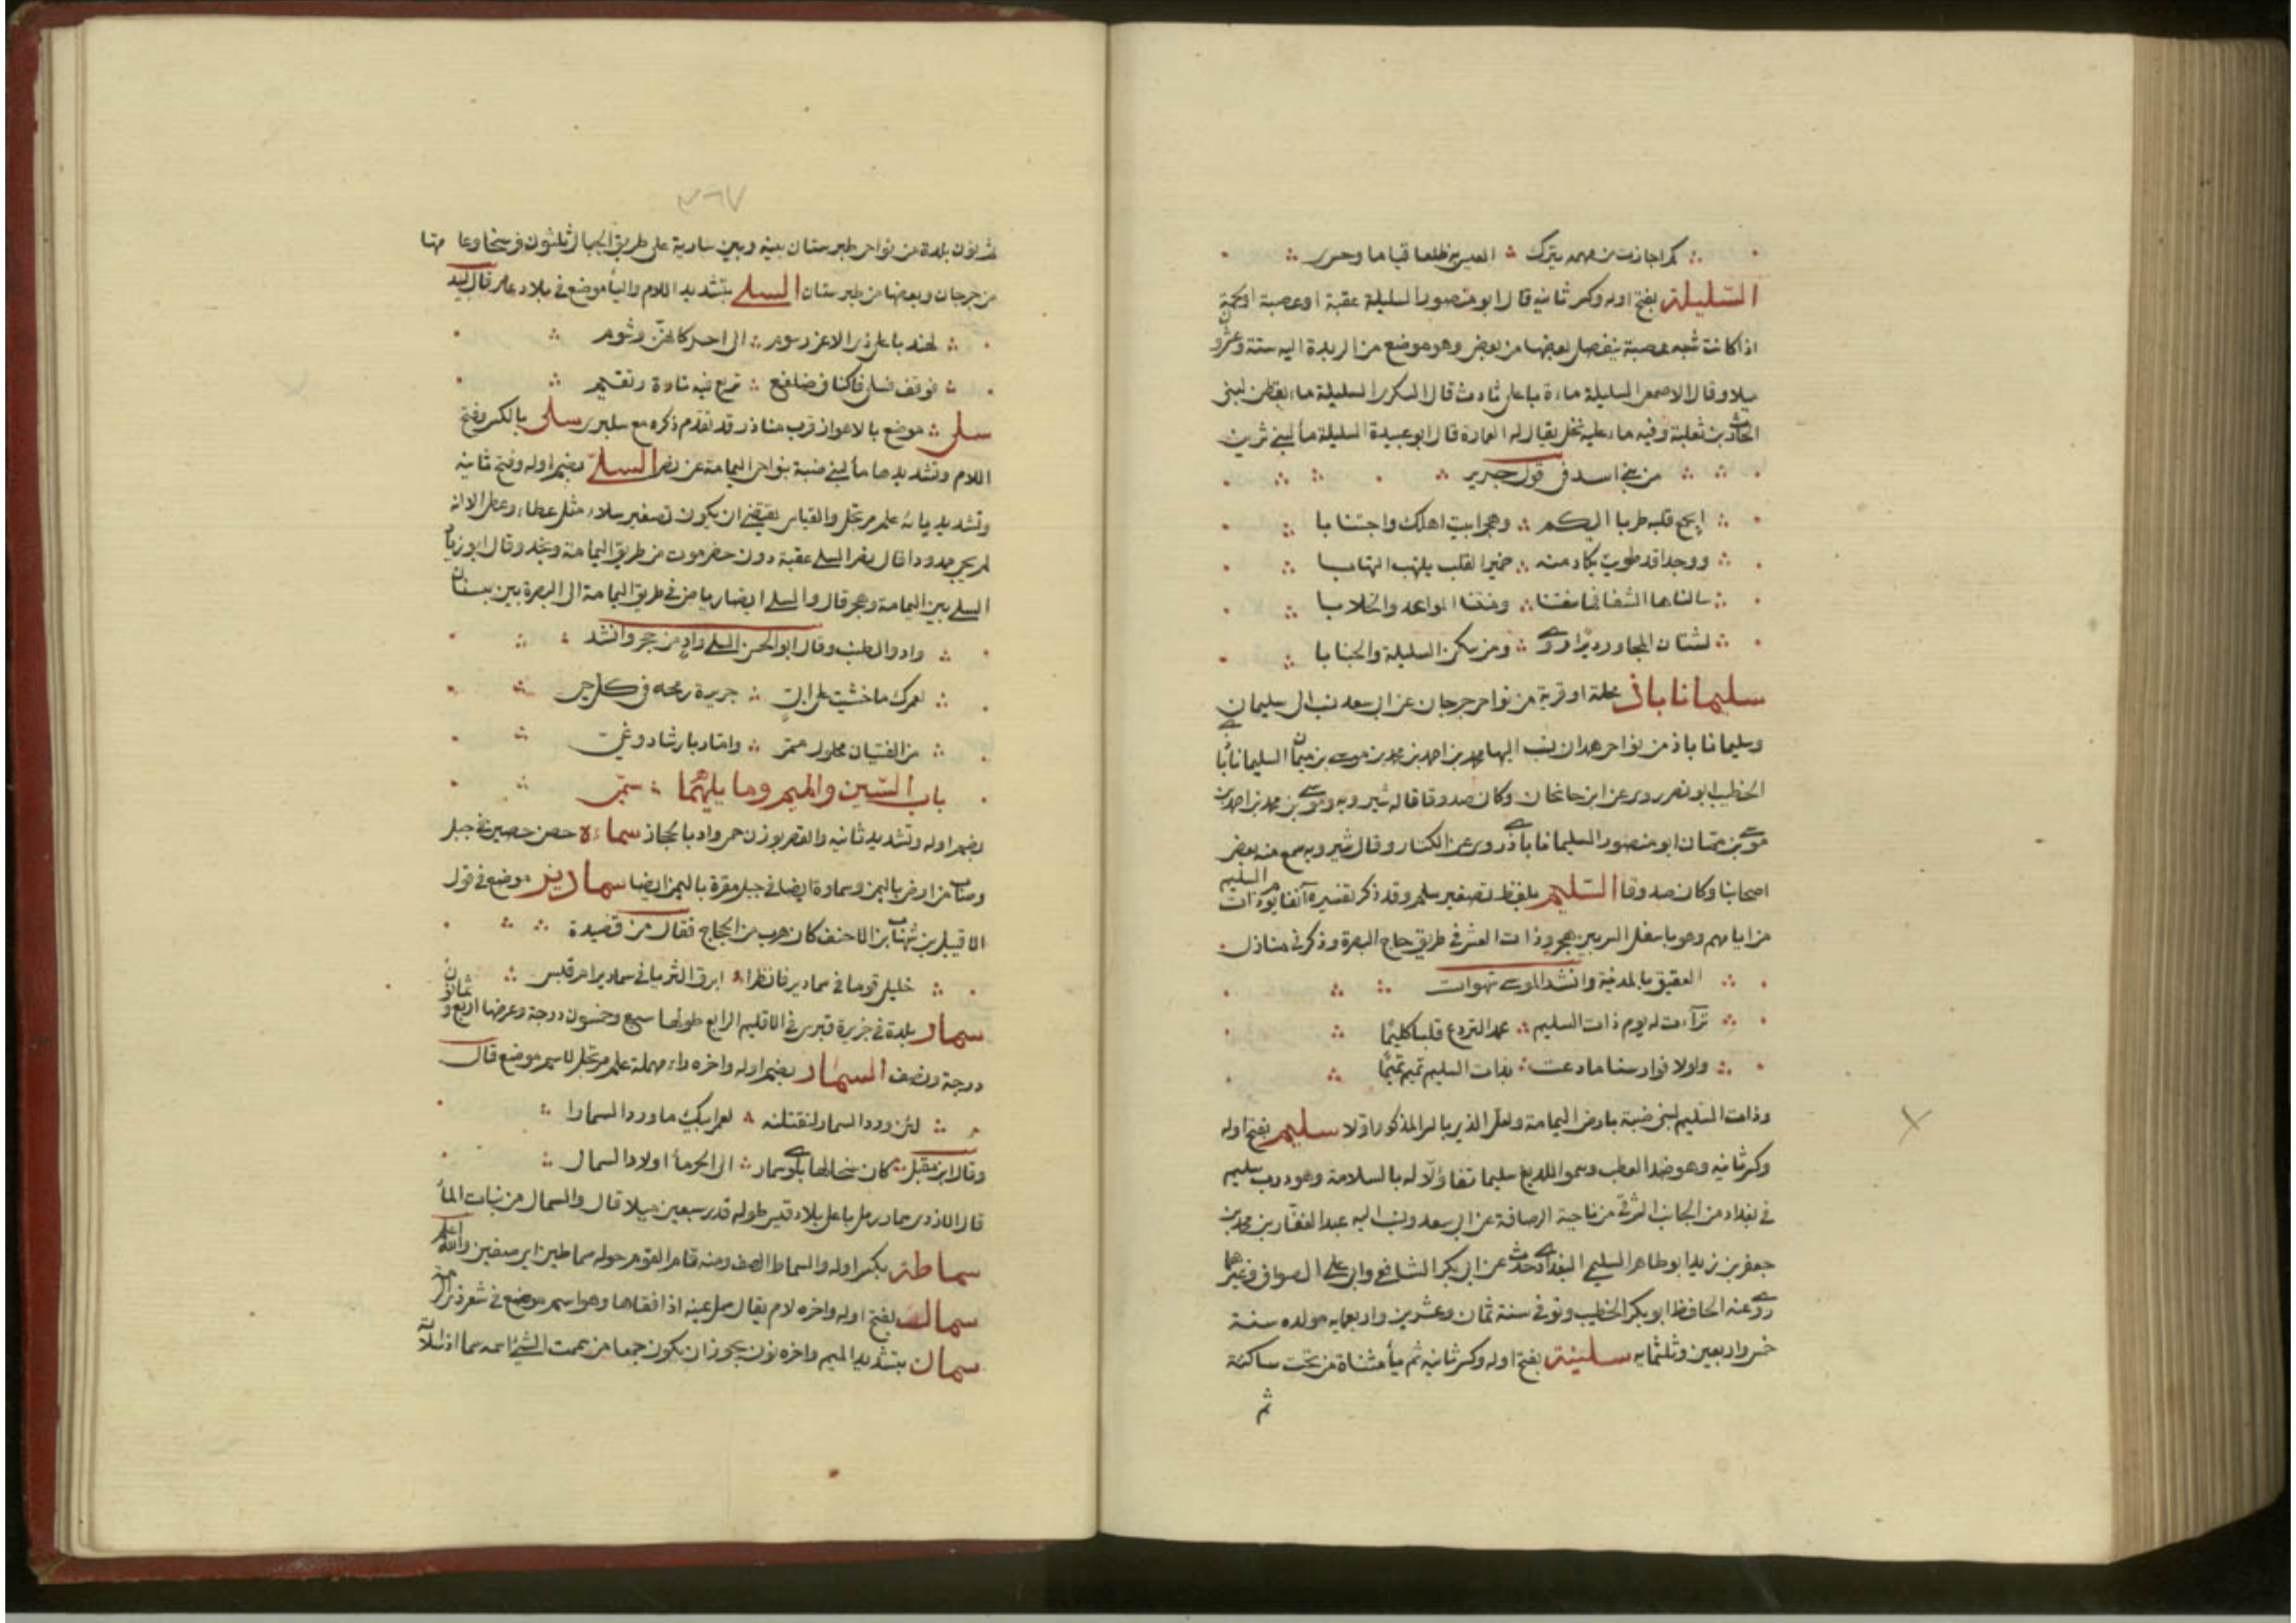 كم اجازت من مهمه يترك ∴ العيس من ظلعا قياما وحسرى
السليلة بفتح اوله وكسر ثانيه قال ابو منصور السليلة عقبة او عصبة او لحمة
اذا كانت شبه عصبة ينفصل بعضها من بعض وهو موضع من الربذة اليه ستة وعشرون
ميلا وقال الاصمعى السليلة ماءة باعلى ثادث قال السكرى السليلة ماء بقطن لبنى
الحارث بن ثعلبة وفيه ماء عليه نخل يقال له العمارة قال ابو عبيدة السليلة مأ لبنى ثرين
من بنى اسد فى قول جرير
ايجمع قلبه طربا اليكم ∴ وهجرا بيت اهلك واجتنابا
ووجدا قد طويت يكاد منه ∴ ضمير القلب يلتهب التهابا
سالناها الشفا فما شفتنا ∴ ومنتنا المواعد والخلابا
لشتان المجاور ديرا روى ∴ ومن سكن السليلة والجنابا
سليمانا باذ محلة او قرية من نواحى جرجان عن ابى سعد نسب الى سليمان
وسليمانا باذ من نواحى همدان ينسب اليها محمد بن احمد بن محمد بن موسى بن ميمان السليمانا باذى
الخطيب ابو نصر روى عن ابن جانجان وكان صدوقا قاله شيرويه وموسى بن محمد بن احمد بن
موسى بن ميمان ابو منصور السليمانا باذى روى عن الكسار وقال شيرويه سمع منه بعض
اصحابنا وكان صدوقا السليم بلفظ تصغير سلم وقد ذكر تفسيره آنفا يوم ذات السليم
من ايامهم وهو باسفل السر بين هجر وذات العشر فى طريق حاج البصرة وذكر فى منازل
العقيق بالمدينة وانشد لموسى شهوات
ترآءت له يوم ذات السليم ∴ عمدا لتردع قلبا كليما
ولولا فوارسنا ما دعت ∴ بذات السليم تميم تميما
وذات السليم لبنى ضبة بارض اليمامة ولعل الذى بالسر المذكور اولا سليم بفتح اوله
وكسر ثانيه وهو ضد العطب وسموا اللديغ سليما تفاؤلا له بالسلامة وهو درب سليم
فى بغداد من الجانب الشرقى من ناحية الرصافة عن ابى سعد ونسب اليه عبد الغفار بن محمد بن
جعفر بن زيد ابو طاهر السليمى البغدادى حدث عن ابى بكر الشافعى وابى على الصواف وغيرهما
روى عنه الحافظ ابو بكر الخطيب وتوفى سنة ثمان وعشرين واربعمايه مولده سنة
خمس واربعين وثلثمايه سلينة بفتح اوله وكسر ثانيه ثم يأ مثناة من تحت ساكنة
ثم
٣٦٧
ثم نون بلدة من نواحى طبرستان بينه وبين سارية على طريق الجبال ثلثون فرسخا وعا متها
من جرجان وبعضها من طبرستان السلى بتشديد اللام واليأ موضع فى بلاد عامر قال لبيد
لهند باعلى ذى الاغر رسوم ∴ الى احد كانهن وشوم
فوقف فسلى فاكناف ضلفع ∴ تربع فيه تارة وتقيم
سلى ∴ موضع بالاهواز قرب مناذر قد تقدم ذكره مع سلبرى سلى بالكسر وفتح
اللام وتشديدها مأ لبنى ضبة بنواحى اليمامة عن نصر السلى بضم اوله وفتح ثانيه
وتشديد يائه علم مرتجل والقياس يقتضى ان يكون تصغير سلاء مثل عطاء وعطى الا انه
لم يجئ ممدودا قال نصر السلى عقبة دون حضرموت من طريق اليمامة ونجد وقال ابو زياد
السلى بين اليمامة وهجر قال والسلى ايضا رياض فى طريق اليمامة الى البصرة بين بسنان
واد والطنب وقال ابو الحسن السلى واد من حجر وانشد
لعمرك ما خشيت على ابى ∴ جريرة رمحه فى كل حى
من الفتيان محلول ممر ∴ وامّار بارشاد وغى
باب السين والميم وما يليهما ∴ سمى
بضم اوله وتشديد ثانيه والقصر بوزن حمى واد بالحجاز سماءة حصن حصين فى جبل
وصاب من ارض باليمن وسماءة ايضا فى جبل مقرة باليمن ايضا سمادير موضع فى قول
الاقيبل بن شهاب بن الاحنف كان هرب من الحجاج فقال من قصيدة
خليلى قوما فى سمادير فانظرا ∴ ابرق الثريا فى سمادير ام قبس
سمار بلدة فى جزيرة قبرس فى الاقليم الرابع طولها سبع وخمسون درجة وعرضها اربع وثمانون
درجة ونصف السمار بضم اوله واخره راء مهملة علم مرتجل لاسم موضع قال
لئن ورد السمار لنقتلنه ∴ لعمر ابيك ما ورد السمارا
وقال ابن مقبل ∴ كان سخالها بلوى سمار ∴ الى الخرمأ اولاد السمال
قال الازدى سمار رمل باعلى بلاد قيس طوله قدر سبعين ميلا قال والسمال من نبات المأ
سماطة بكسر اوله والسماط الصف ومنه قام القوم حوله سماطين اى صفين والله اعلم
سمال بفتح اوله واخره لام يقال سمل عينه اذا فقاها وهو اسم موضع فى شعر ذى الرمة
سمان بتشديد الميم واخره نون يجوز ان يكون جمعا من سممت الشئ اسمه سما اذا سللته